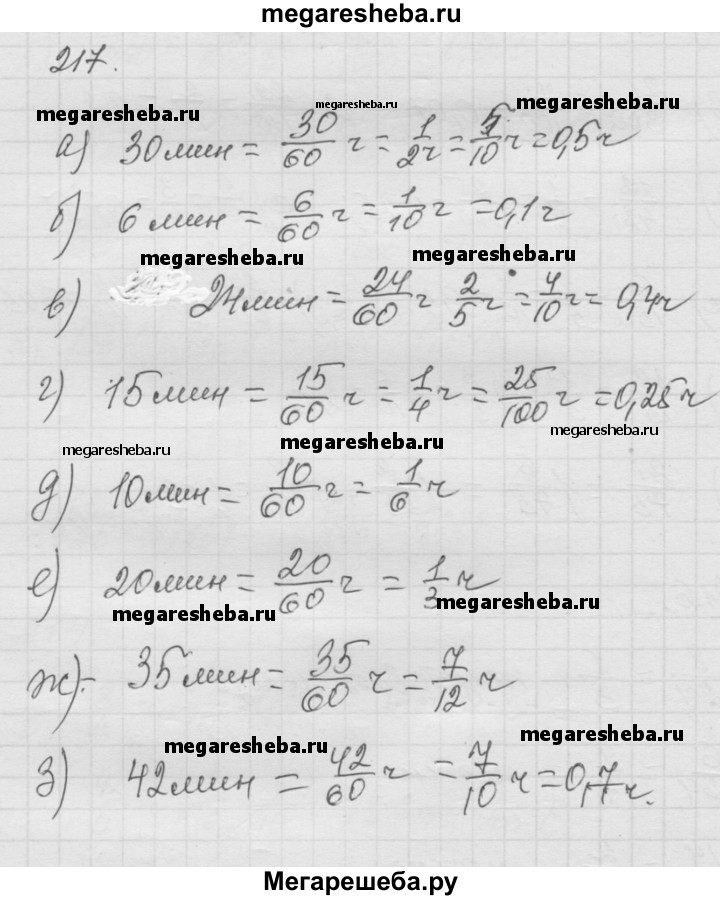 megaresheba.ru
217.
megaresheba.ru megaresheba.ru megaresheba.ru
а) 30 мин = 30/60 ч = 1/2 ч = 5/10 ч = 0,5 ч
б) 6 мин = 6/60 ч = 1/10 ч = 0,1 ч
megaresheba.ru megaresheba.ru
в) 24 мин = 24/60 ч 2/5 ч = 4/10 ч = 0,4 ч
г) 15 мин = 15/60 ч = 1/4 ч = 25/100 ч = 0,25 ч
megaresheba.ru megaresheba.ru megaresheba.ru
д) 10 мин = 10/60 ч = 1/6 ч
е) 20 мин = 20/60 ч = 1/3 ч
megaresheba.ru megaresheba.ru
ж) 35 мин = 35/60 ч = 7/12 ч
megaresheba.ru megaresheba.ru
з) 42 мин = 42/60 ч = 7/10 ч = 0,7 ч.
Мегарешеба.ру